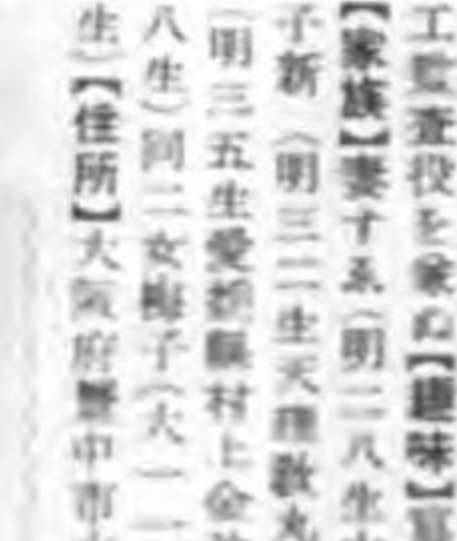 工監査役を兼ぬ【趣味】
【家族】妻すゑ（明二八生
子新（明三二生天理教丸
（明三五生愛媛縣村上金
八生）同二女梅子（大一一
生）【住所】大阪府豐中市